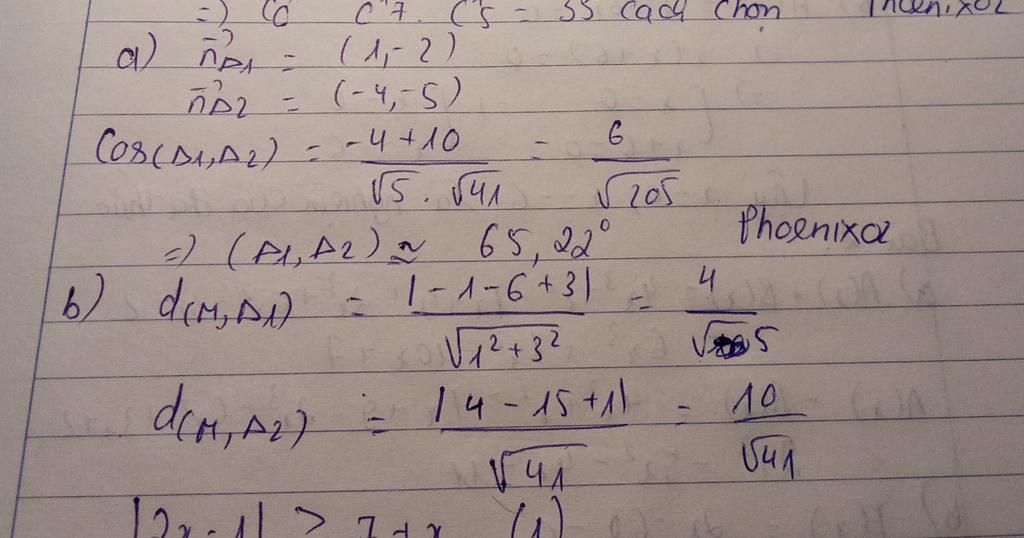 =) Có C¹7 . C¹5 = 35 cách chọn Phoenixaz
a) n⃗Δ1 = (1,-2)
n⃗Δ2 = (-4,-5)
Cos(Δ1,Δ2) = -4+10/√5 . √41 = 6/√205
=) (Δ1,Δ2) ≈ 65,22° Phoenixaz
b) d(M,Δ1) = |-1-6+3|/√1²+3² = 4/√5
d(M,Δ2) = |4-15+1|/√41 = 10/√41
|2x-1| > 7+x (1)